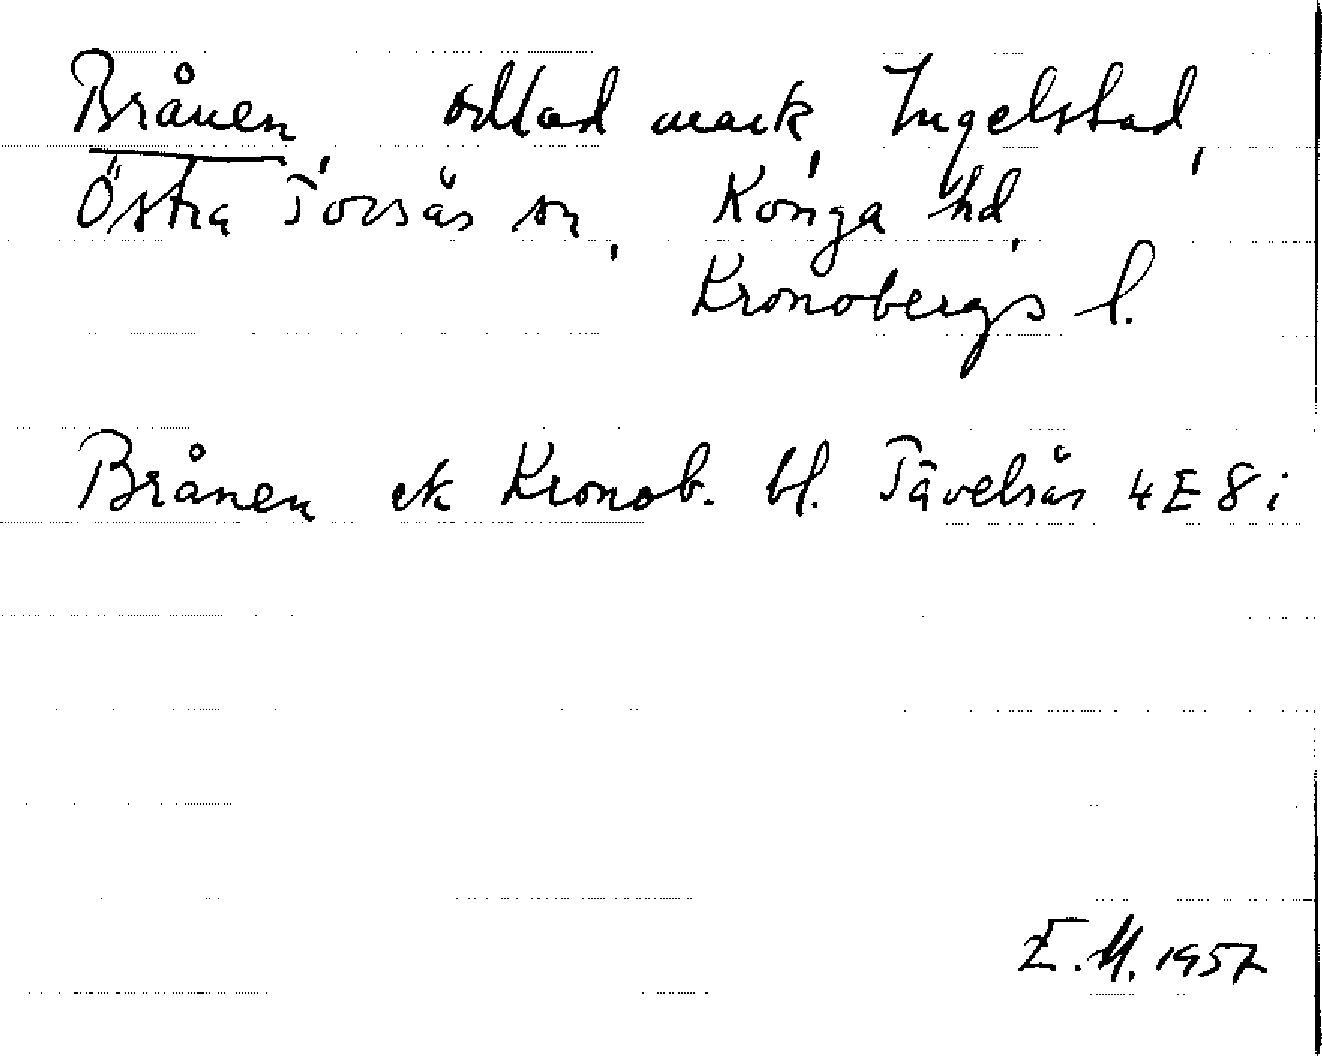 Brånen, odlad mark, Ingelstad,
Östra Torsås sn, Konga hd,
Kronobergs l.
Brånen ek Kronob. bl. Tävelsås 4E8i
E.M. 1957